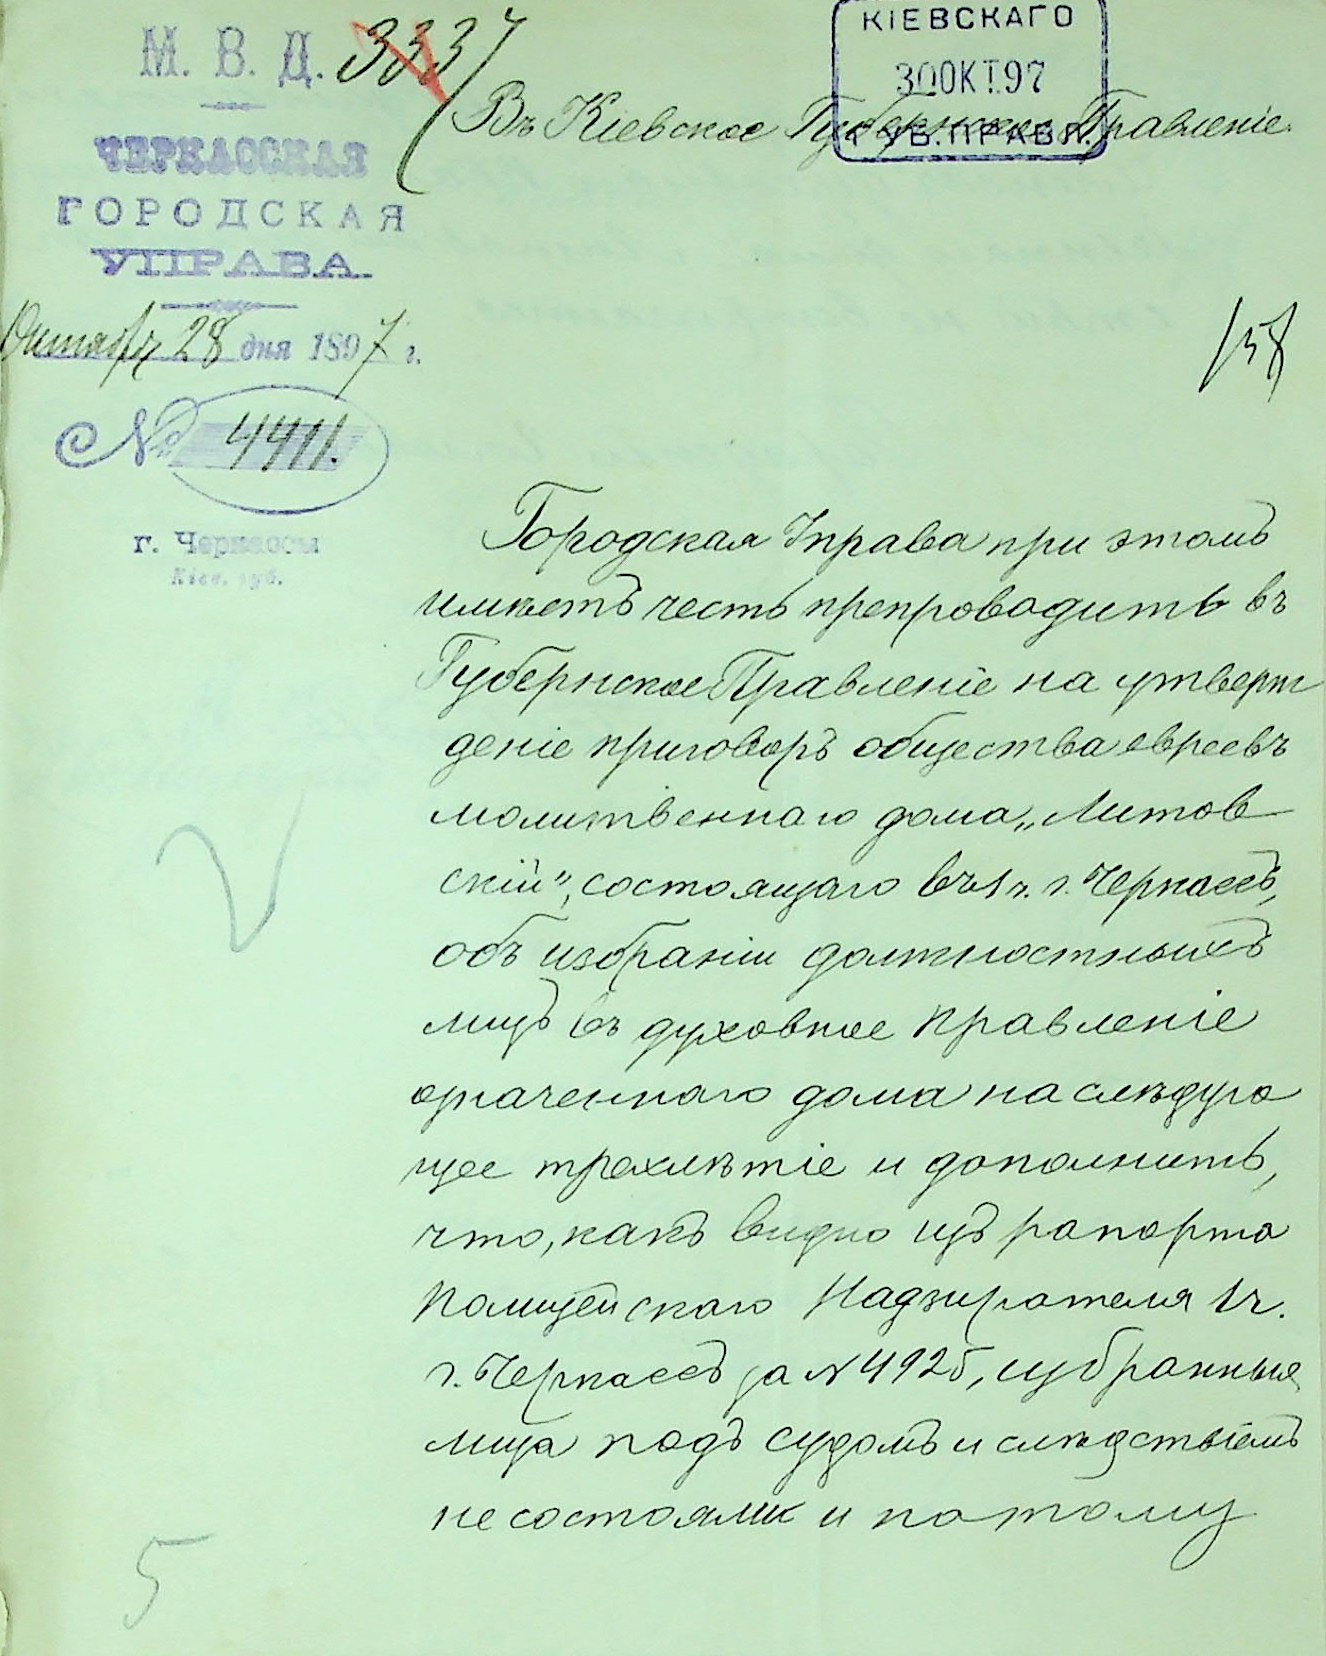 М. В. Д.
3337
КІЕВСКАГО
30 ОКТ. 97
ГУБ. ПРАВЛ.
Въ Кіевское Губернское Правленіе.
ЧЕРКАССКАЯ
ГОРОДСКАЯ
УПРАВА
Октября 28 дня 1897 г.
№ 4411.
г. Черкассы
Кіев. губ.
158
Городская Управа при этомъ
имѣетъ честь препроводить въ
Губернское Правленіе на утверж
деніе приговоръ общества евреевъ
молитвеннаго дома „Литов
скій", состоящаго въ 1 ч. г. Черкассъ,
объ избраніи должностныхъ
лицъ въ духовное правленіе
означеннаго дома на слѣдую
щее трехлѣтіе и дополнить,
что, какъ видно изъ рапорта
Полицейскаго Надзирателя 1 ч.
г. Черкассъ за № 4925, избранныя
лица подъ судомъ и слѣдствіемъ
не состояли и потому
5